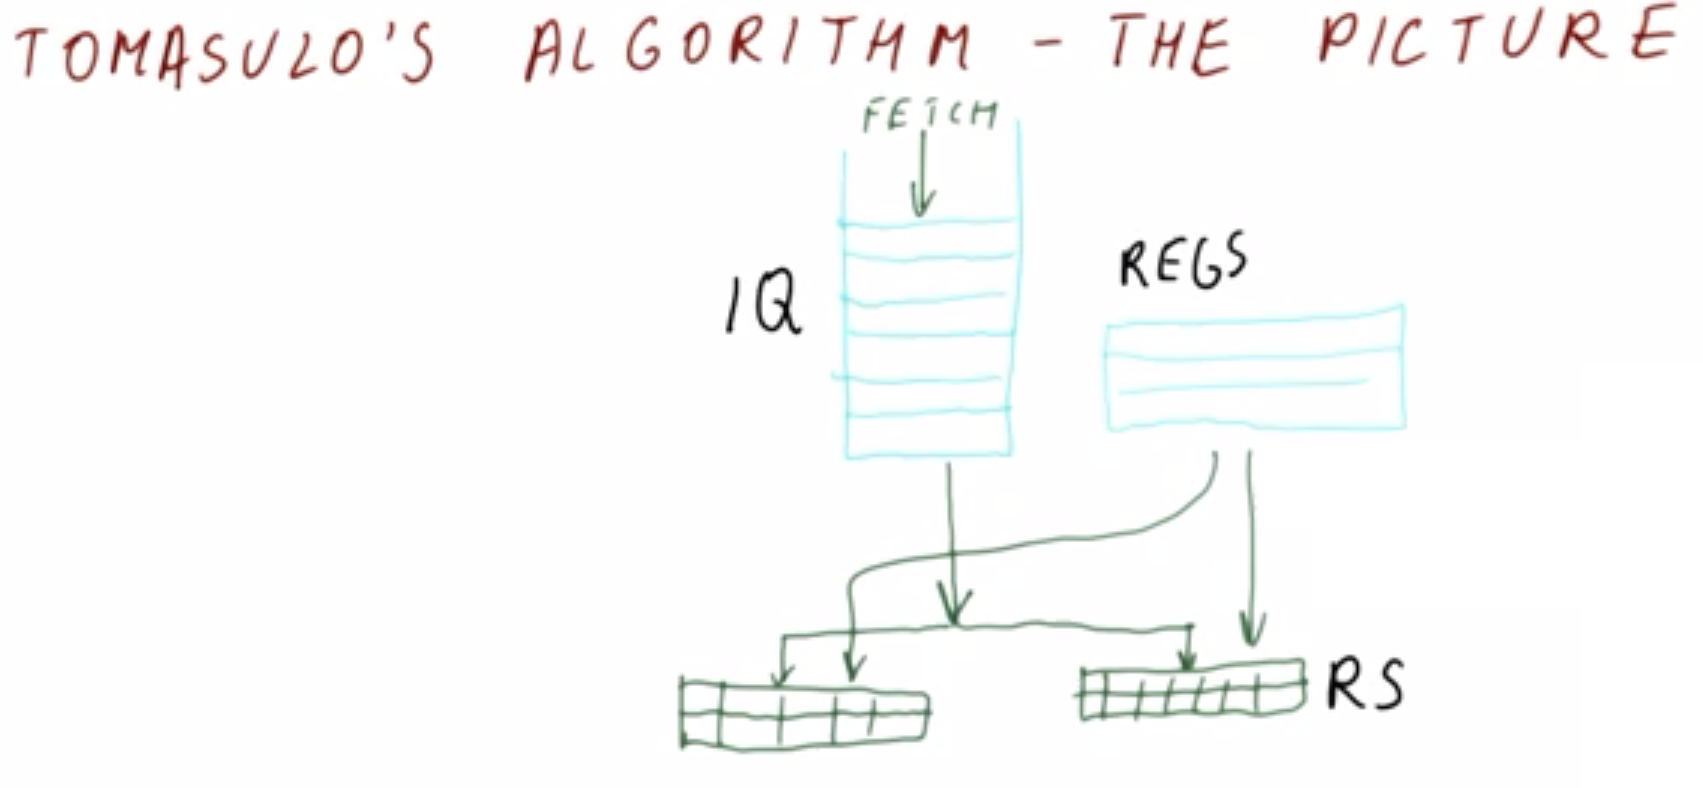 TOMASULO'S ALGORITHM - THE PICTURE
FETCH
IQ
REGS
RS